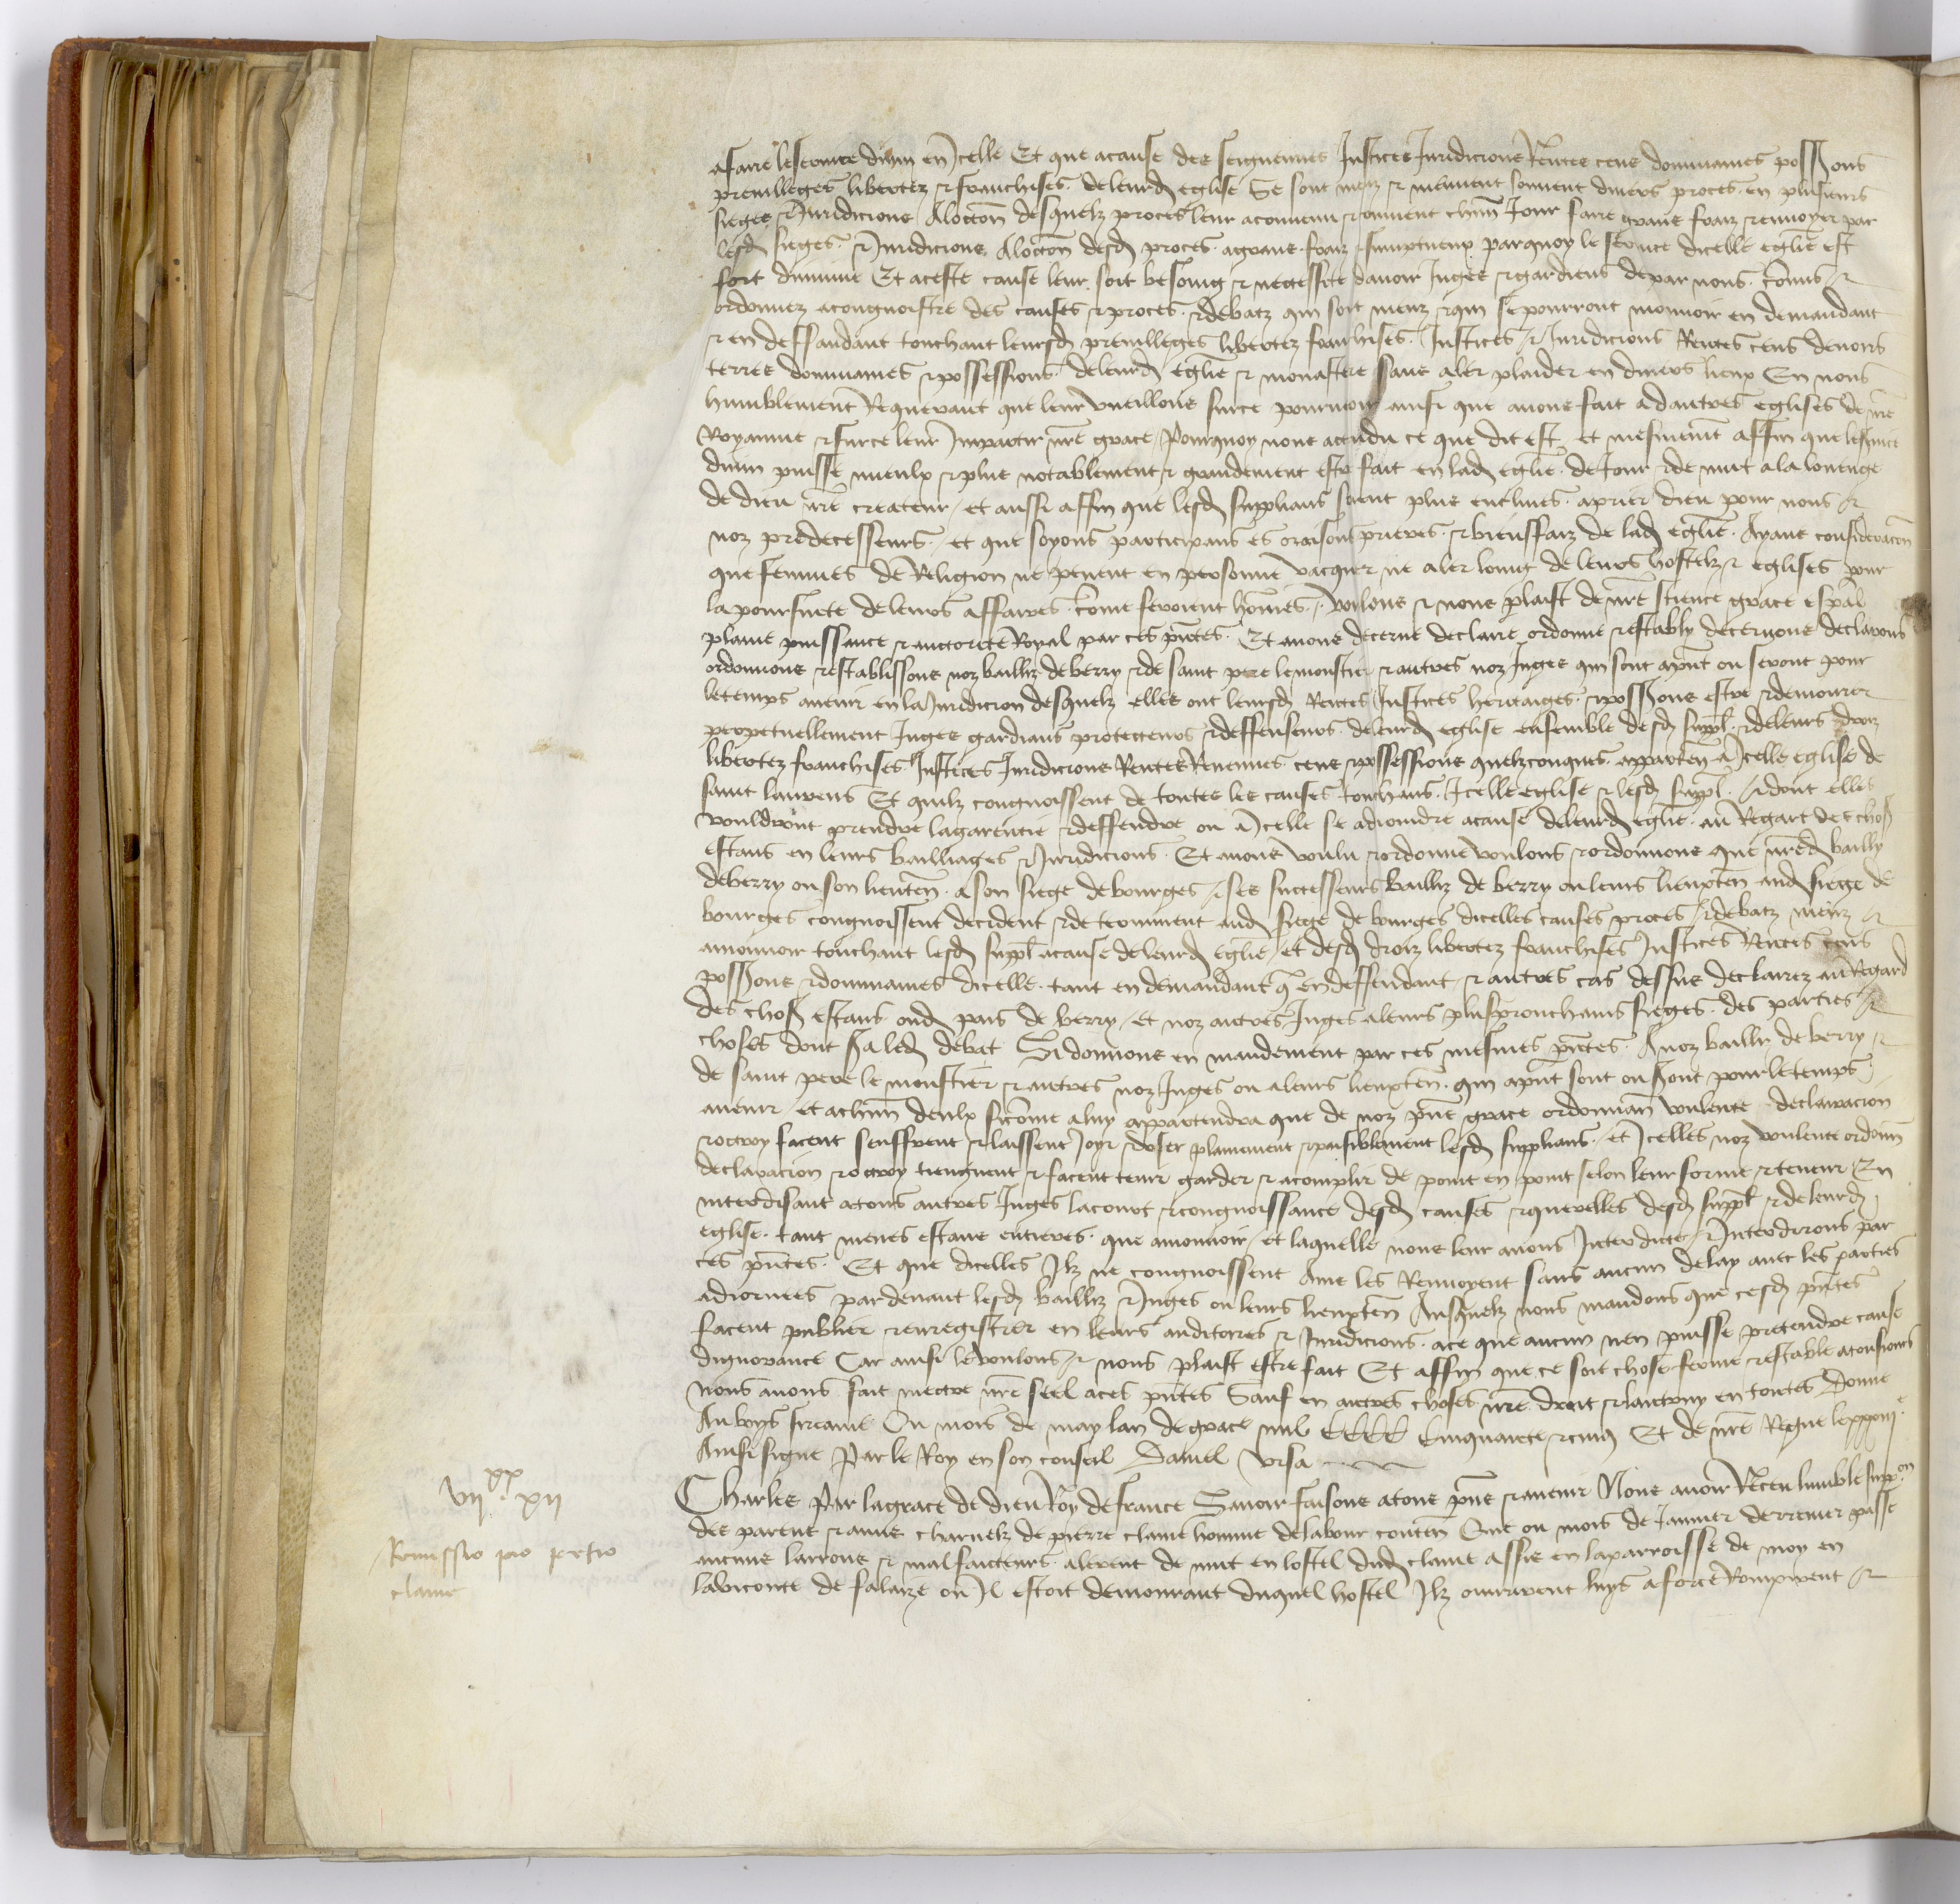 afaire leservice divin en Icelle Et que acause des seigneuries Justices Juridicions Rentes cens dommaines possions
previlleges libertez & franchises deleurd eglise Se sont meuz & meuvent souvent divers proces en plusieurs
sieges & Juridicions Aloccon desquelz proces leur aconvenu & convient chun Jour faire grans fraiz & envoyer par
lesd sieges & Juridicions Aloccon desd proces agrans fraiz & sumptueux parquoy le service dicelle eglie est
fort diminué Et aceste cause leur soit besoing & necessite davoir Juges & gardiens depar nous comis &
ordonnez acongnoistre des causes & proces & debatz qui sont meuz & qui se pourront mouvoir en demandant
& en deffandant touchant leursd previlleges libertez franchises Justices & Juridicions Rentes cens devoirs
terres dommaines & possessions deleurd eglie & monastere sans aler plaider en divers lieux En nous
humblement Requerant que leur vueillons surce pourveoir ainsi que avons fait a dautres eglises de nre
Royaume & surce leur Impartir nre grace Pourquoy nous actendu ce que dit est et mesmemt affin que leservice
divin puisse mieulx & plus notablement & grandement estre fait en lad eglie de Jour & de nuit a la louenge
de dieu nre createur et aussi affin que lesd supplians soient plus enclines aprier dieu pour nous &
noz predecesseurs et que soyons participans es oroisons prieres & bienffaiz de lad eglie Ayans consideracon
que femmes de Religion ne pevent en personne vacquer ne aler loing de leurs hostelz & eglises pour
la poursuite deleurs affaires come feroient homes voulons & nous plaist de nre science grace espal
plaine puissance & auctorite Royal par ces pntes Et avons decerne declaire ordonne & estably decernons declarons
ordonnons & establissons noz bailliz deberry & de saint pere lemonstier & autres noz Juges qui sont apnt ou seront pour
letemps avenir en la Juridicion desquelz elles ont leursd Rentes Justices heritaiges & possions estre & demourer
perpetuellement Juges gardians protecteurs & deffenseurs deleurd eglise ensemble desd suppl & deleurs droiz
libertez franchises Justices Juridicions Rentes Revenues cens & possessions quelzconques apparten a Icelle eglise de
saint laurens Et quilz congnoissent de toutes les causes touchans Icelle eglise & lesd suppl & dont elles
vouldront prendre lagarentie & deffendre ou a Icelle se adioindre acause deleurd eglie au Regart des chos
estans en leurs bailliages & Juridicions Et avons voulu & ordonne voulons & ordonnons que nred bailly
deberry ou son lieuten a son siege debourges & ses successeurs bailliz de berry ou leurs lieuxten aud siege de
bourges congnoissent decident & determinent aud siege de bourges dicelles causes proces & debatz meuz &
amouvoir touchant lesd suppl acause deleurd eglie et desd droiz libertez franchises Justices Rentes cens
possions & dommaines dicelle tant en demandant q en deffendant & autres cas dessus declairez au Regard
des chos estans oud pais de berry et noz autres Juges aleurs plusprouchains sieges des parties &
choses dont sera led debat Si donnons en mandement par ces mesmes pntes Anoz bailliz de berry &
de saint pere le monstier & autres noz Juges ou aleurs lieuxten qui apnt sont ou seront pour letemps
avenir et achun deulx sicome aluy appartendra que de noz pnt grace ordonnan voulente declaracion
& octroy facent seuffrent & laissent Joyr & user plainement & paisiblement lesd supplians et Icelles noz voulente ordonn
declaracion & octroy tiengnent & facent tenir garder & acomplir de point en point selon leur forme & teneur En
interdisant atous autres Juges lacourt & congnoissance desd causes & querelles desd suppl & deleurd
eglise tant meues estans entieres que amouvoir et laquelle nous leur avons Interdicte & Interdisons par
ces pntes Et que dicelles Ilz ne congnoissent Ains les Renvoyent sans aucun delay avec les parties
adiornees pardevant lesd bailliz & Juges ou leurs lieuxten Ausquelz nous mandons que cesd pntes
facent publier & enregistrer en leurs auditoires & Juridicions ace que aucun nen puisse pretendre cause
dignorance Car ainsi levoulons & nous plaist estre fait Et affin que ce soit chose ferme & estable atousiours
nous avons fait mectre nre seel aces pntes Sauf en autres choses nre droit & lautruy en toutes Donne
Au boys sireamé Ou mois de may lan de grace mil CCCC Cinquante & cinq Et de nre Regne le xxxiije
Ainsi signe Par le Roy en son conseil Daniel Visa
Charles Par lagrace de dieu Roy de france Savoir faisons atous pns & avenir Nous avoir Receu lumble suppon
des parens & amis charnelz de pierre clame homme delabour conten Que ou mois de Janvier derrenier passe
aucuns larrons & malfaicteurs alerent de nuit en lostel dud clame assis en laparroisse de moy en
laviconte de falaize ou Il estoit demourant duquel hostel Ilz ouvrirent luys aforce Rompirent &
vii xx xii
Remissio pro petro
clame